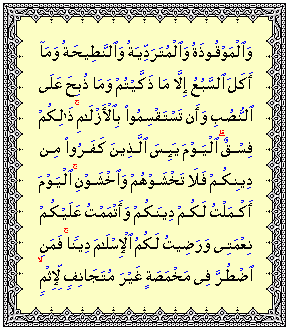 وَٱلْمَوْقُوذَةُ وَٱلْمُتَرَدِّيَةُ وَٱلنَّطِيحَةُ وَمَآ
أَكَلَ ٱلسَّبُعُ إِلَّا مَا ذَكَّيْتُمْ وَمَا ذُبِحَ عَلَى
ٱلنُّصُبِ وَأَن تَسْتَقْسِمُوا۟ بِٱلْأَزْلَـٰمِ ۚ ذَٰلِكُمْ
فِسْقٌ ۗ ٱلْيَوْمَ يَئِسَ ٱلَّذِينَ كَفَرُوا۟ مِن
دِينِكُمْ فَلَا تَخْشَوْهُمْ وَٱخْشَوْنِ ۚ ٱلْيَوْمَ
أَكْمَلْتُ لَكُمْ دِينَكُمْ وَأَتْمَمْتُ عَلَيْكُمْ
نِعْمَتِى وَرَضِيتُ لَكُمُ ٱلْإِسْلَـٰمَ دِينًا ۚ فَمَنِ
ٱضْطُرَّ فِى مَخْمَصَةٍ غَيْرَ مُتَجَانِفٍ لِّإِثْمٍ ۙ